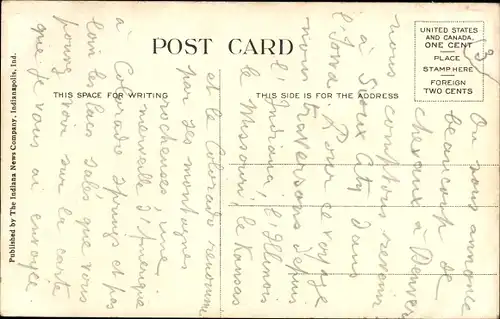 POST CARD
UNITED STATES
AND CANADA,
ONE CENT
PLACE
STAMP HERE
FOREIGN
TWO CENTS
(3)
THIS SPACE FOR WRITING
THIS SIDE IS FOR THE ADDRESS
Published by The Indiana News Company, Indianapolis, Ind.
On nous annonce
beaucoup de
chevaux à Denver
nous comptons revenir
à Sioux City dans
l'Iowa Pour ce voyage
nous traversons depuis
l'Indiana, l'Illinois
le Missouri, le Kansas
et le Colorado renommé
par ses montagnes
rocheuses, une
merveille d'Amérique
à Colorado Springs et pas
loin les lacs salés que vous
pouvez voir sur la carte
que je vous ai envoyée.